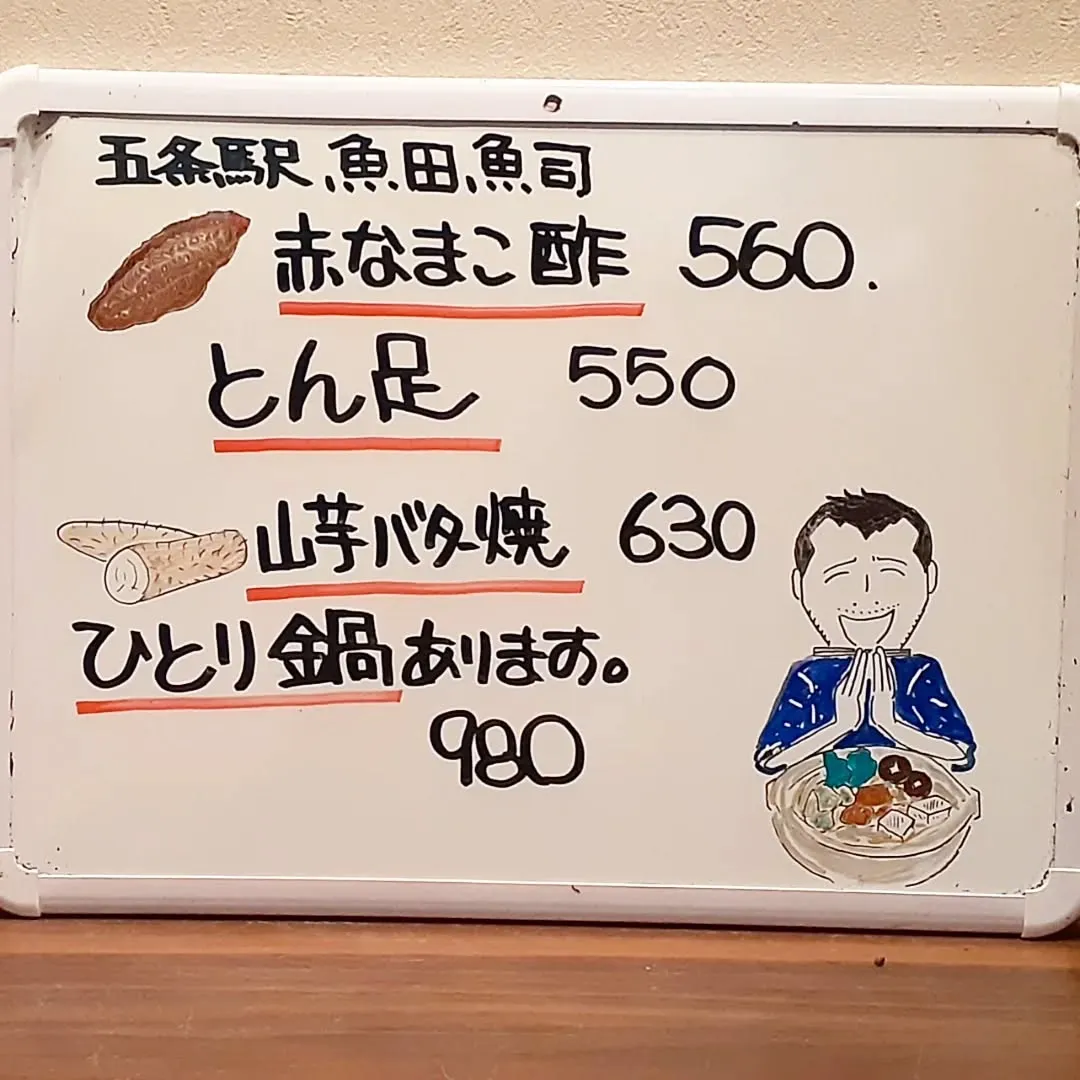 五条駅、魚田、魚司
赤なまこ酢 560.
とん足 550
山芋バター焼 630
ひとり鍋あります。
980